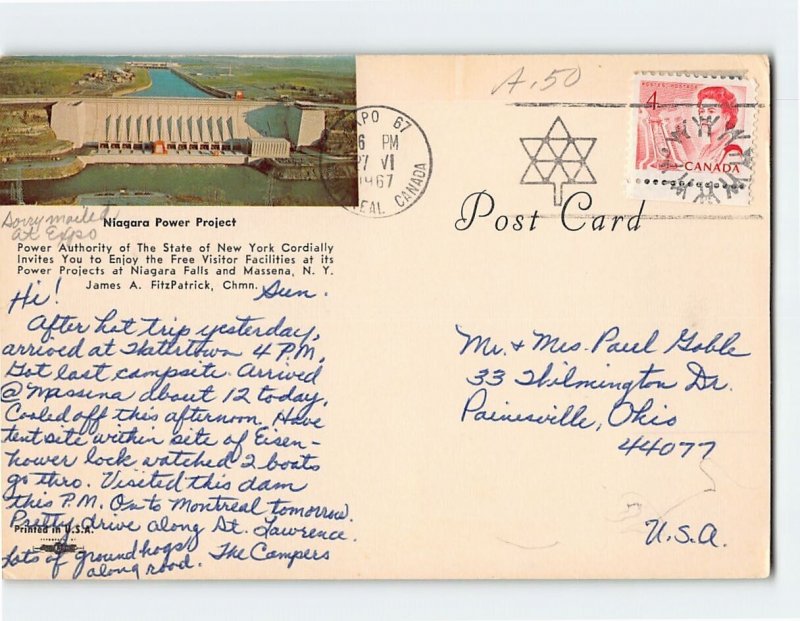 A.50
EXPO 67
6 PM
27 VI
1967
CANADA
4
POSTES POSTAGE
CANADA
Sorry mailed
at Expo
Niagara Power Project
Post Card
Power Authority of The State of New York Cordially
Invites You to Enjoy the Free Visitor Facilities at its
Power Projects at Niagara Falls and Massena, N. Y.
James A. FitzPatrick, Chmn.
Hi! Sun.
After hot trip yesterday,
arrived at Watertown 4 P.M.
Got last campsite. Arrived
@ Massena about 12 today.
Cooled off this afternoon. Have
tent site within site of Eisen-
hower lock watched 2 boats
go thro. Visited this dam
this P.M. On to Montreal tomorrow.
Pretty drive along St. Lawrence.
Lots of groundhogs
along road. The Campers
Printed in U.S.A.
Mr. + Mrs. Paul Goble
33 Wilmington Dr.
Painesville, Ohio
44077
U.S.A.